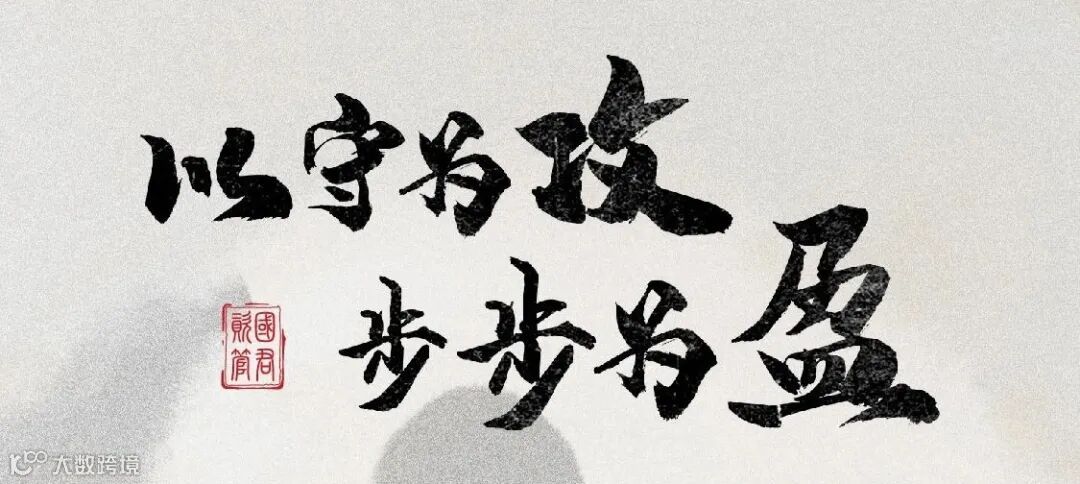 以守为攻
步步为盈
國君
資管
大数跨境